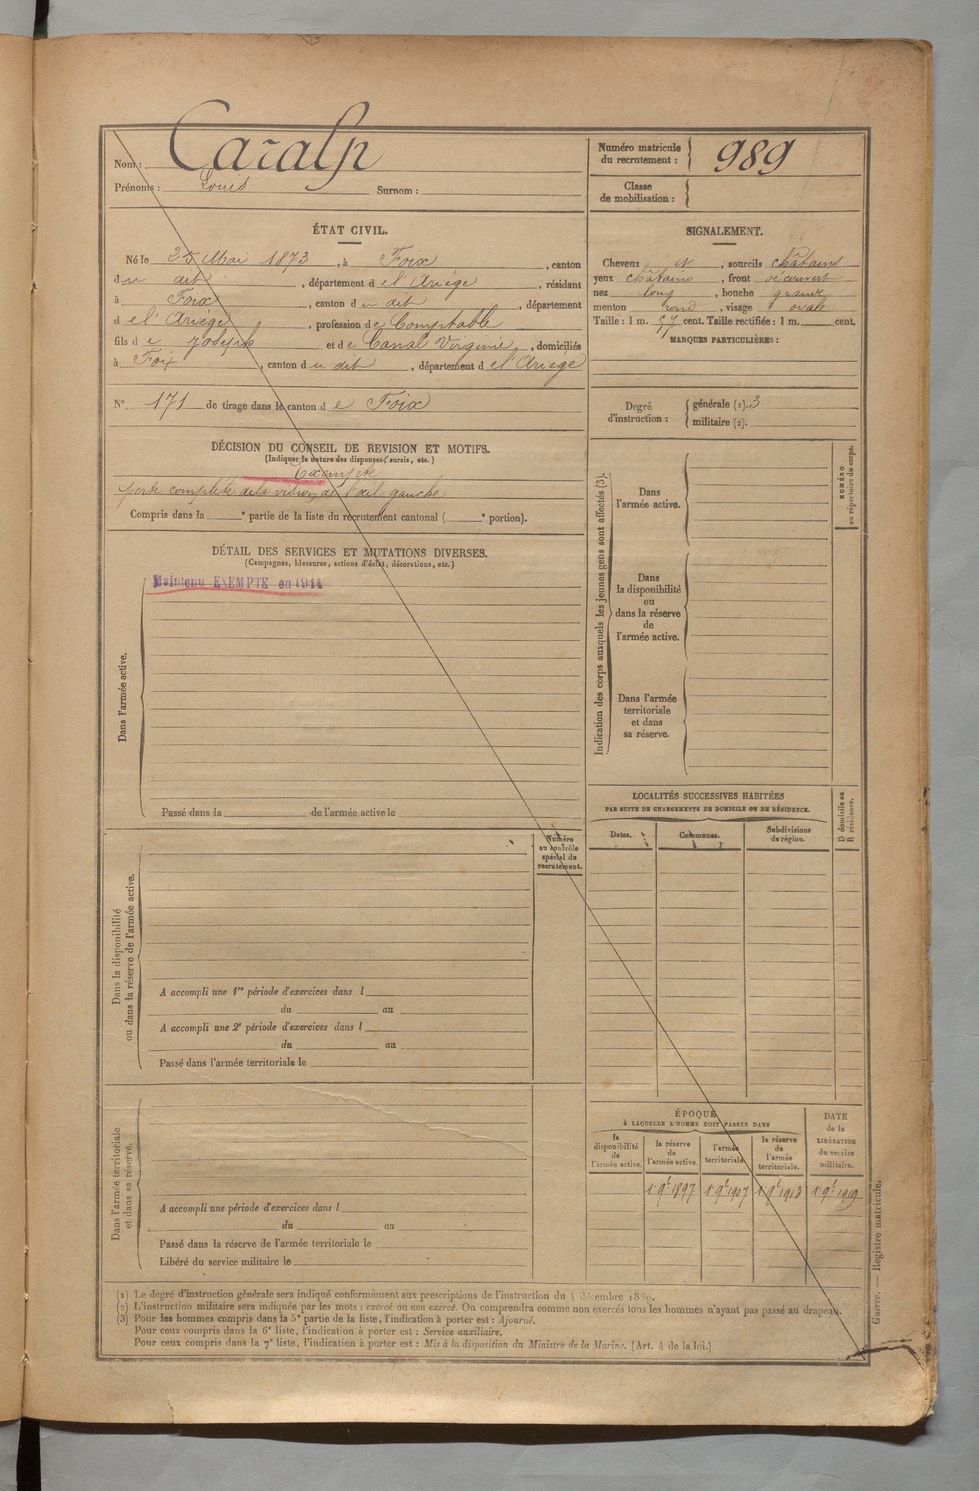 Nom : Caralp
Prénoms : Louis Surnom :
Numéro matricule du recrutement : 989
Classe de mobilisation :
ÉTAT CIVIL.
Né le 25 Mai 1873, à Foix, canton
du dit, département de l'Ariège, résidant
à Foix, canton du dit, département
de l'Ariège, profession de Comptable
fils de Joseph et de Canal Virginie, domiciliés
à Foix, canton du dit, département de l'Ariège
N° 171 de tirage dans le canton de Foix
SIGNALEMENT.
Cheveux , sourcils châtains
yeux châtains, front découvert
nez long, bouche grande
menton rond, visage ovale
Taille : 1 m. 57 cent. Taille rectifiée : 1 m. cent.
MARQUES PARTICULIÈRES :
Degré d'instruction : générale (1). 3
militaire (2).
DÉCISION DU CONSEIL DE REVISION ET MOTIFS.
(Indiquer la nature des dispenses, sursis, etc.)
Exempté
perte complète de la vision de l'œil gauche
Compris dans la e partie de la liste du recrutement cantonal ( e portion).
DÉTAIL DES SERVICES ET MUTATIONS DIVERSES.
(Campagnes, blessures, actions d'éclat, décorations, etc.)
Maintenu EXEMPTÉ en 1914
Dans l'armée active.
Passé dans la de l'armée active le
Indication des corps auxquels les jeunes gens sont affectés (3).
Dans l'armée active.
Dans la disponibilité ou dans la réserve de l'armée active.
Dans l'armée territoriale et dans sa réserve.
NUMÉRO au répertoire du corps.
LOCALITÉS SUCCESSIVES HABITÉES
PAR SUITE DE CHANGEMENTS DE DOMICILE OU DE RÉSIDENCE.
Dates. Communes. Subdivisions de région.
D domicile ou R résidence.
Dans la disponibilité ou dans la réserve de l'armée active.
Numéro au contrôle spécial du recrutement.
A accompli une 1re période d'exercices dans l
du au
A accompli une 2e période d'exercices dans l
du au
Passé dans l'armée territoriale le
Dans l'armée territoriale et dans sa réserve.
A accompli une période d'exercices dans l
du au
Passé dans la réserve de l'armée territoriale le
Libéré du service militaire le
ÉPOQUE
À LAQUELLE L'HOMME DOIT PASSER DANS
la disponibilité de l'armée active.
la réserve de l'armée active.
l'armée territoriale.
la réserve de l'armée territoriale.
DATE de la LIBÉRATION du service militaire.
1er 9bre 1897 1er 9bre 1907 1er 9bre 1913 1er 9bre 1919
(1) Le degré d'instruction générale sera indiqué conformément aux prescriptions de l'instruction du 4 décembre 1889.
(2) L'instruction militaire sera indiquée par les mots : exercé ou non exercé. On comprendra comme non exercés tous les hommes n'ayant pas passé au drapeau.
(3) Pour les hommes compris dans la 5e partie de la liste, l'indication à porter est : Ajourné.
Pour ceux compris dans la 6e liste, l'indication à porter est : Service auxiliaire.
Pour ceux compris dans la 7e liste, l'indication à porter est : Mis à la disposition du Ministre de la Marine. (Art. 4 de la loi.)
Guerre. — Registre matricule.